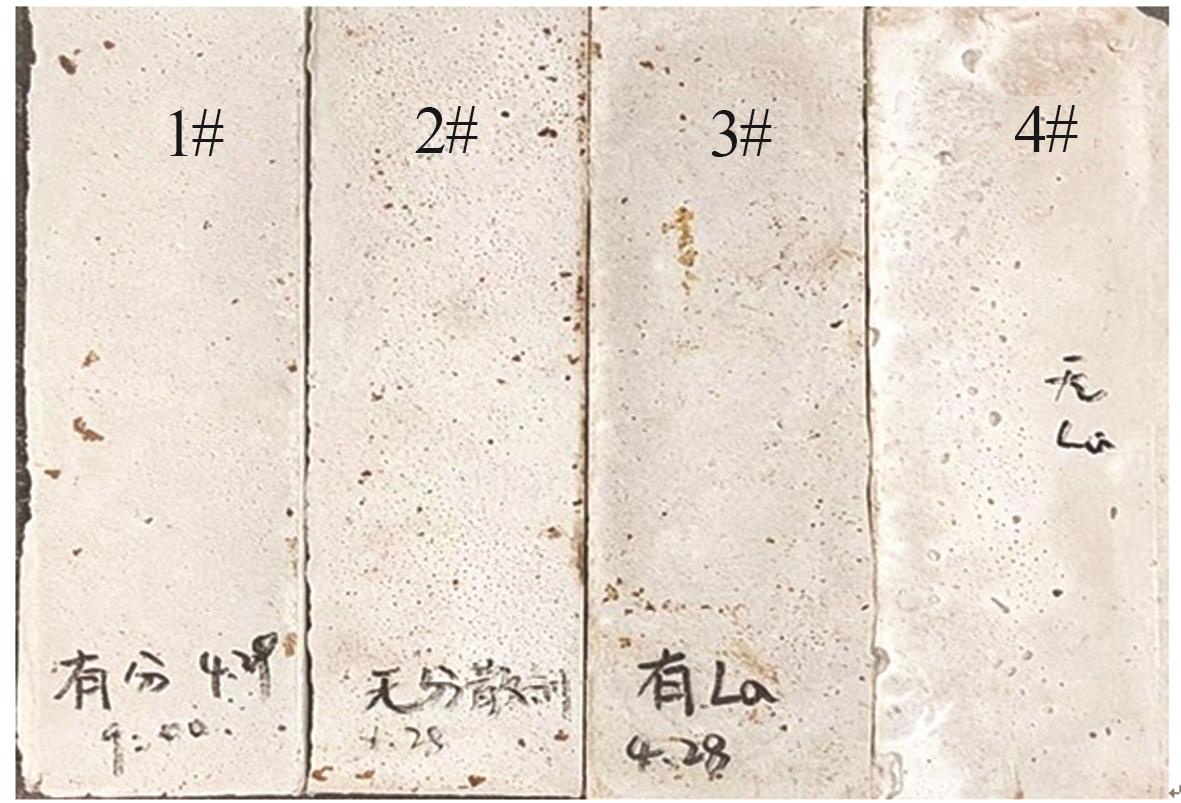 1#
2#
3#
4#
有分 4.29
9:00.
无分散剂
4.28
有La
4.28
无
La